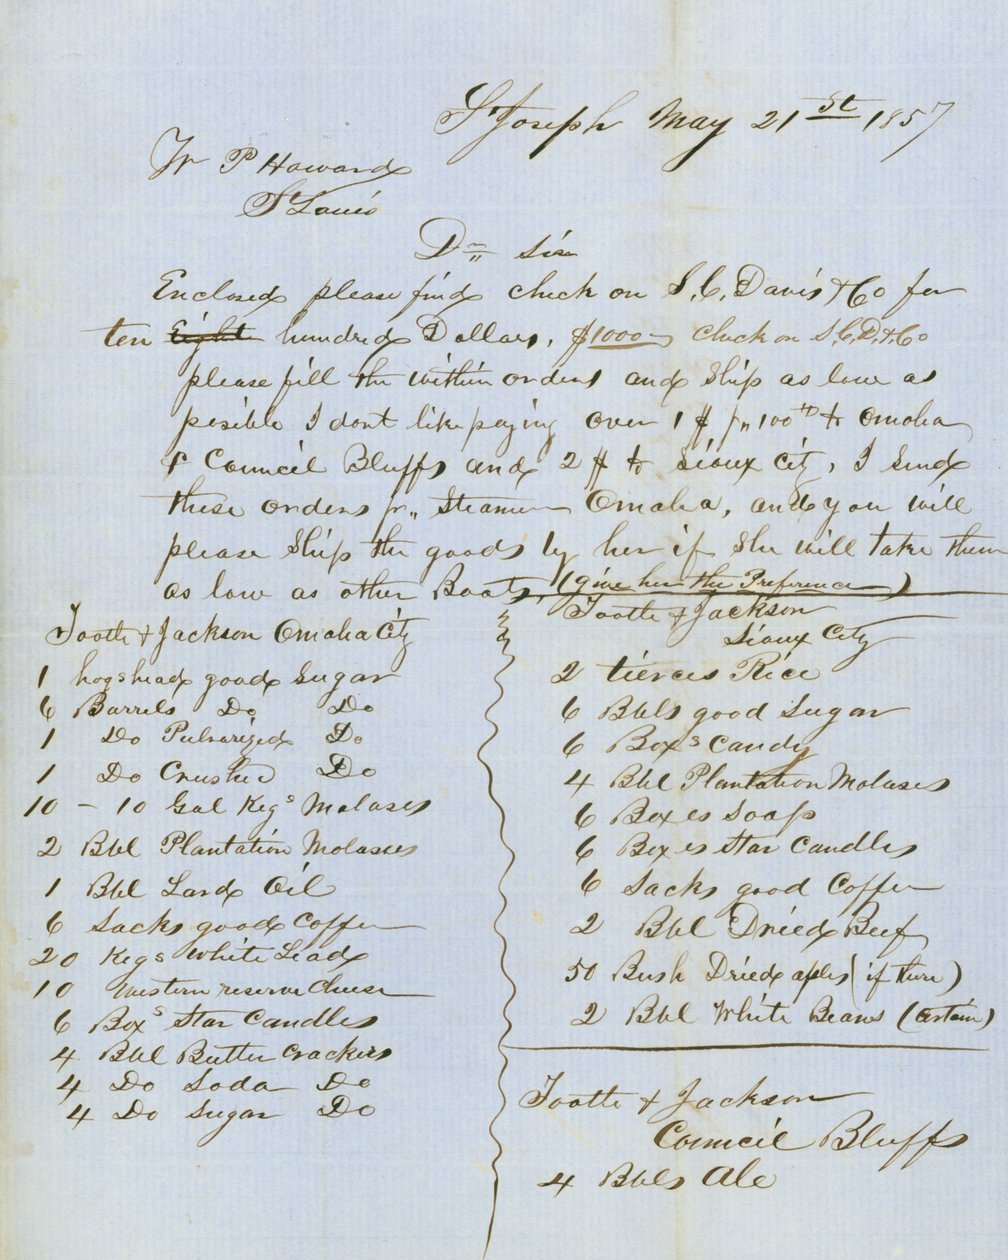 St Joseph May 21st 1857
Wm P Howard
St Louis
Dr Sir
Enclosed please find check on S. C. Davis & Co for
ten Eight hundred Dollars, $1000 check on S. C. D. & Co
please fill the within orders and Ship as low as
posible I dont like paying over 1 $ pr 100 to Omaha
& Council Bluffs and 2 $ to Sioux City, I send
these orders pr Steamer Omaha, and you will
please Ship the goods by her if She will take them
as low as other Boats, (give her the Preference)
Tootle & Jackson Omaha City
1 hogshead good Sugar
6 Barrels Do Do
1 Do Pulverized Do
1 Do Crushed Do
10 - 10 Gal Kegs Molases
2 Bbl Plantation Molasses
1 Bbl Lard Oil
6 Sacks good Coffee
20 Kegs White Lead
10 Western reserve Cheese
6 Boxs Star Candles
4 Bbl Butter Crackers
4 Do Soda Do
4 Do Sugar Do
Tootle & Jackson
Sioux City
2 tierces Rice
6 Bbls good Sugar
6 Boxs Candy
4 Bbl Plantation Molases
6 Boxes Soap
6 Boxes Star Candles
6 Sacks good Coffee
2 Bbl Dried Beef
50 Bush Dried aples (if there)
2 Bbl White Beans (certain)
Tootle & Jackson
Council Bluffs
4 Bbls Ale